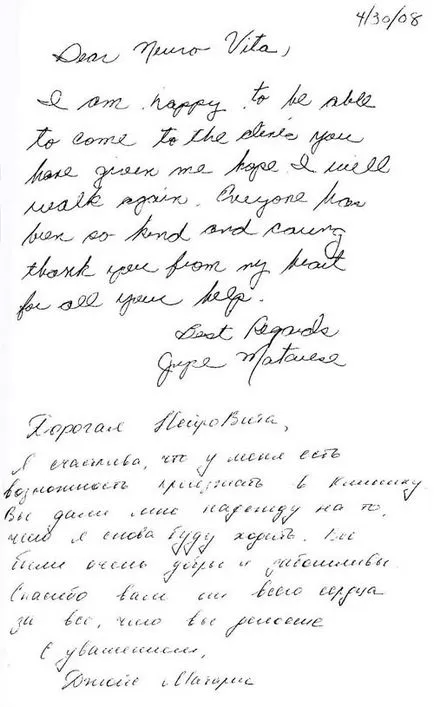 4/30/08
Dear Neuro Vita,
I am happy to be able
to come to the clinic you
have given me hope I will
walk again. Everyone has
been so kind and caring
thank you from my heart
for all your help.
Best Regards
Matarese
Дорогая НейроВита,
Я счастлива, что у меня есть
возможность приезжать в Клинику
Вы дали мне надежду на то,
что я снова буду ходить. Все
были очень добры и заботливы
Спасибо вам от всего сердца
за все, что вы делаете
С уважением,